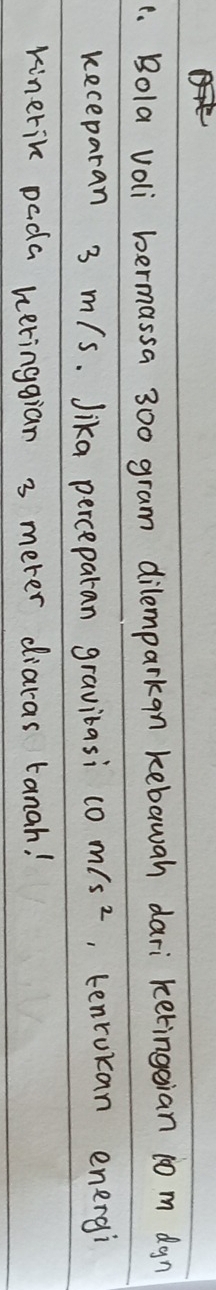 1. Bola Voli bermassa 300 gram dilemparkan kebawah dari ketinggian 10 m dgn
kecepatan 3 m/s. Jika percepatan gravitasi 10 m/s², tentukan energi
kinetik pada ketinggian 3 meter diatas tanah!